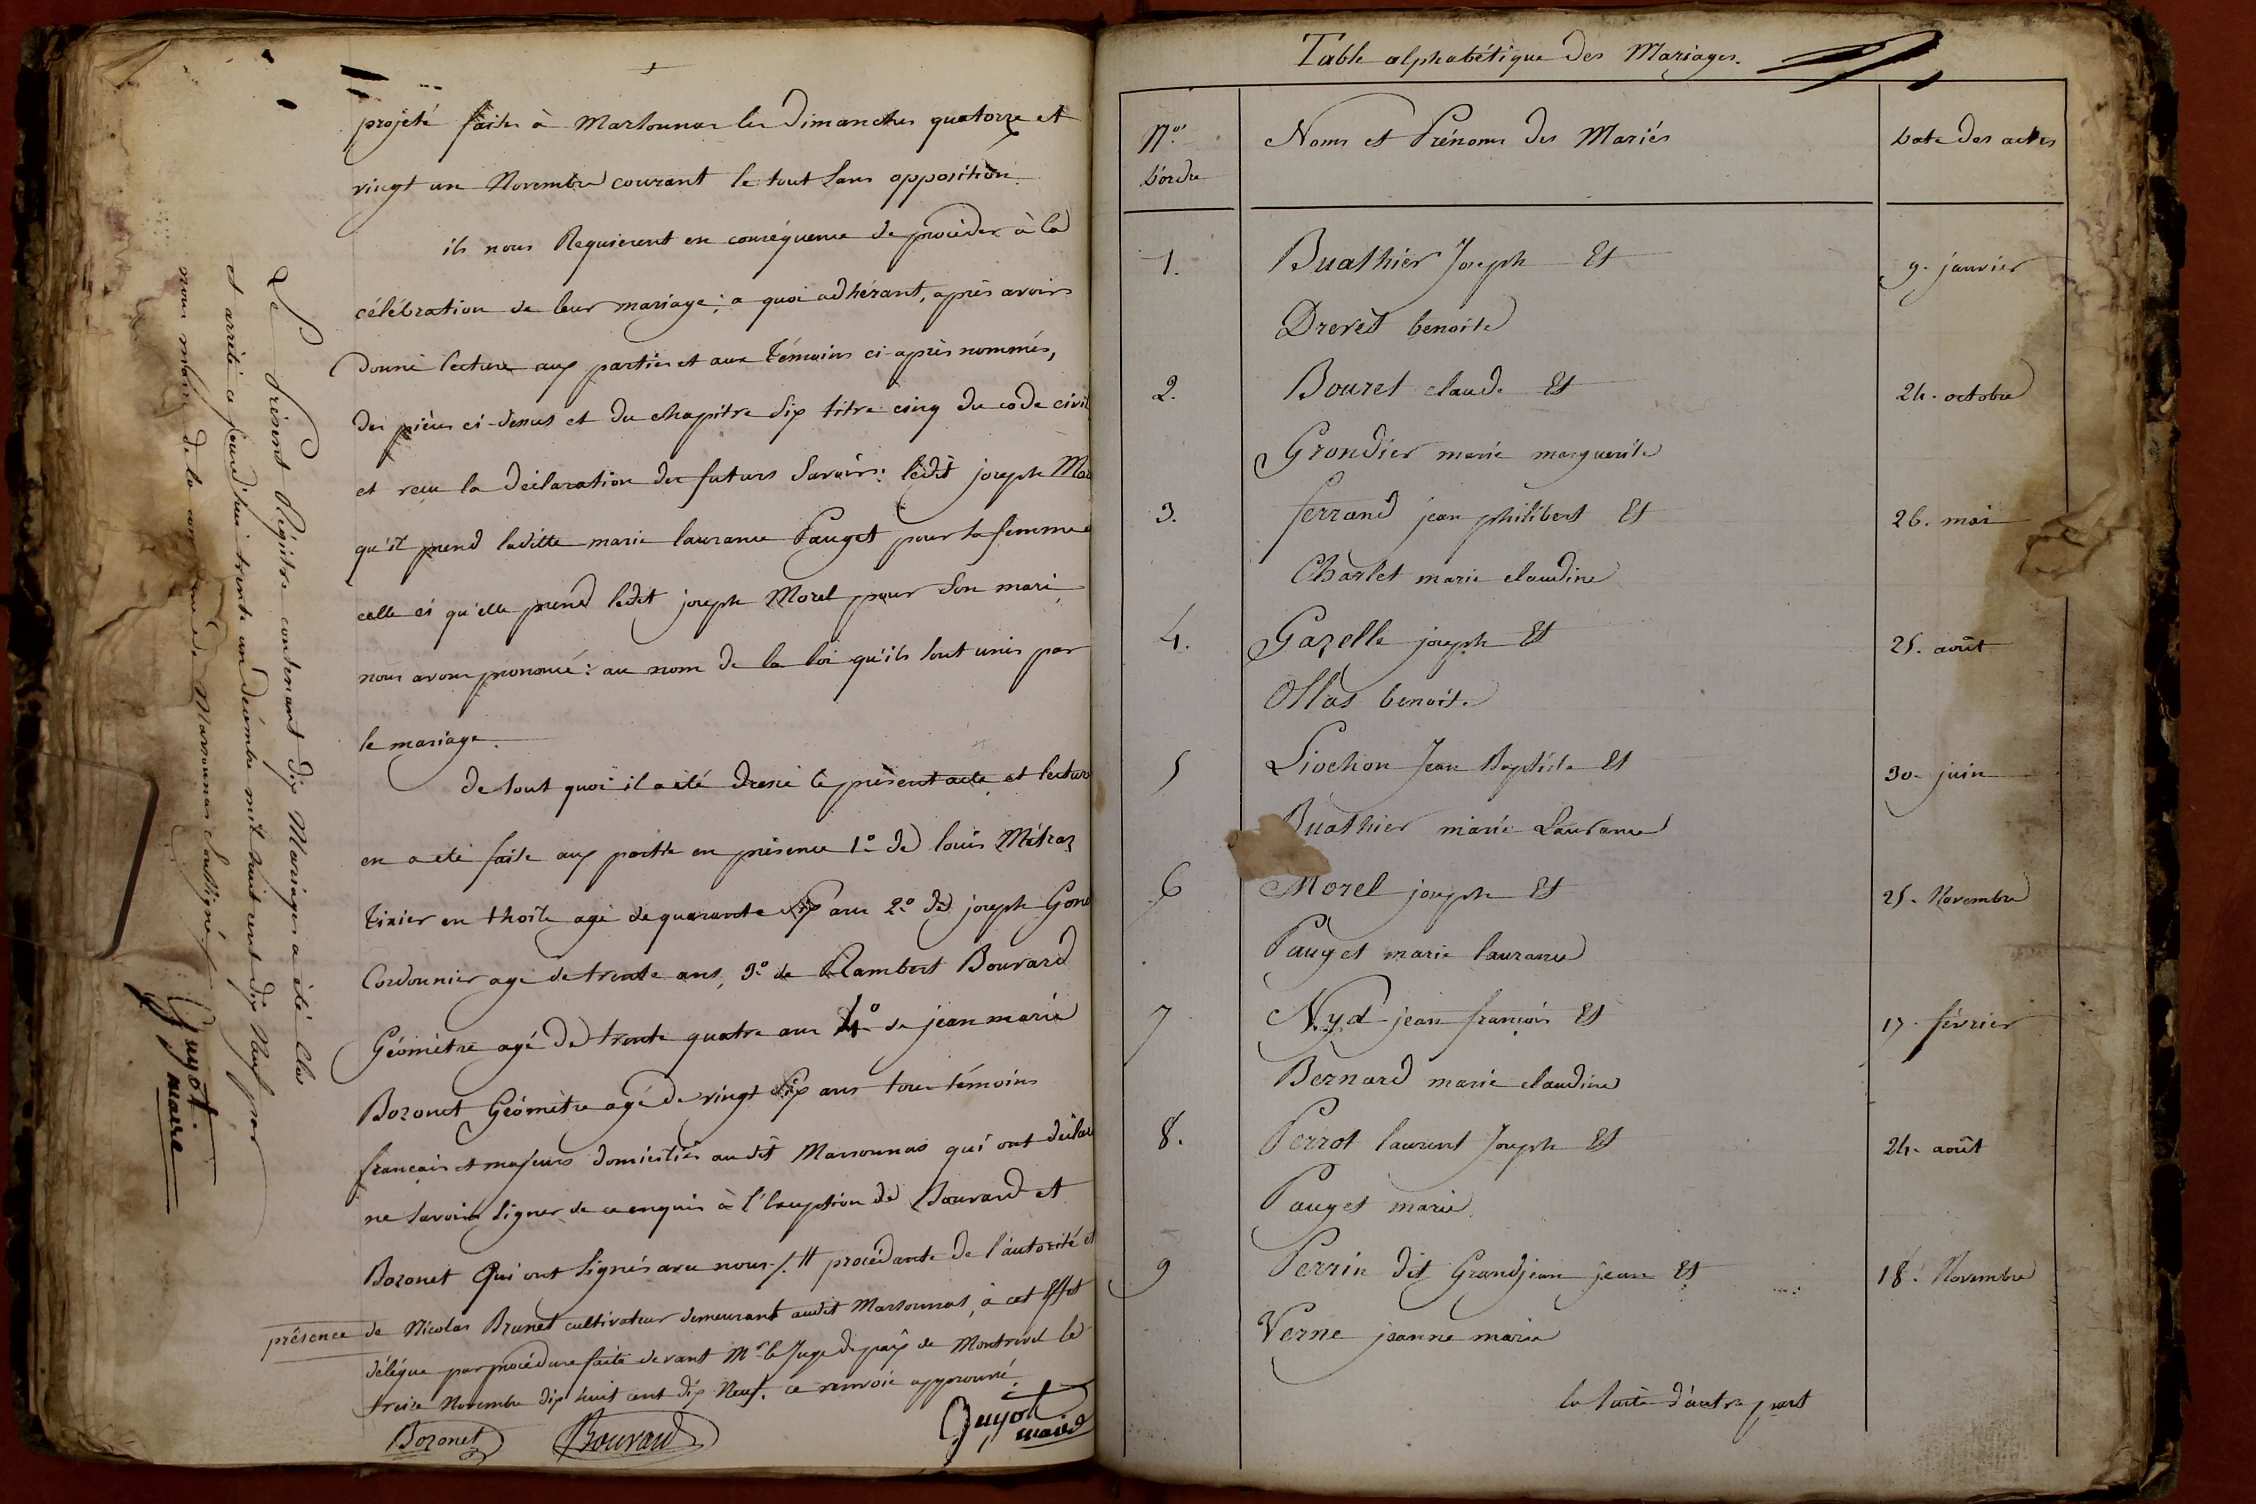 projeté faites à Marsonnas les Dimanches quatorze et
vingt un Novembre courant le tout sans opposition.
ils nous Requierent en conséquence de procéder à la
célébration de leur mariage ; a quoi adhérant, après avoir
Donné lecture aux parties et aux témoins ci-après nommés,
des pièces ci-dessus et du chapitre six titre cinq du code civil
et reçu la déclaration des futurs Savoir : ledit joseph Mo
qu'il prend laditte marie laurance Pauget pour sa femme
celle ci qu'elle prend ledit joseph Morel pour son mari
nous avons prononcé : au nom de la loi qu'ils sont unis par
le mariage.
de tout quoi il a été dressé le présent acte, et lecture
en a été faite aux partie en présence 1.º de louis Métraz
tixier en thoile agé de quarante six ans 2.º de joseph Gon
Cordonnier agé de trente ans, 3.º de Rambert Bouvard
Géomètre agé de trente quatre ans 4.º de jean marie
Bozonet Géomètre agé de vingt six ans tous témoins
français et majeurs domiciliés audit Marsonnas qui ont décla
ne savoir signer de ce enquis à l'éxception de Bouvard et
Bozonet Qui ont signés avec nous ./. # procédante de l'autorité et
présence de Nicolas Brunet cultivateur demeurant audit Marsonnas, à cet effet
délégué par procédure faite devant Mr le Juge de paix de Montrevel le
treize Novembre dix huit cent dix Neuf. ce renvoie approuvé.
Bozonet Bouvard Guyot
maire
Le Présent Régistre contenant dix Mariages a été Clos
et arrêté a jourd'hui trente un Décembre mil huit cent dix Neuf par
nous maire de la commune de Marsonnas soussigné
Guyot.
maire
Table alphabétique des Mariages.
N.os
d'ordre
Noms et Prénoms des Mariés
Date des actes
1. Buathier Joseph Et 9. janvier
Drevet benoite
2. Bouret claude Et 24. octobre
Grondier marie marguerite
3. ferrand jean philibert Et 26. mai
Charlet marie claudine
4. Gazelle joseph Et 25. août
Ollas benoite
5 Liochon Jean Baptiste Et 30. juin
Buathier marie Laurance
6 Morel joseph Et 25. Novembre
Pauget marie laurance
7 Nyd jean françois Et 17. février
Bernard marie claudine
8. Perrot laurent Joseph Et 24. août
Pauget marie
9 Perrin dit Grandjean jean Et 18. Novembre
Verne jeanne marie
la Suite d'autre part